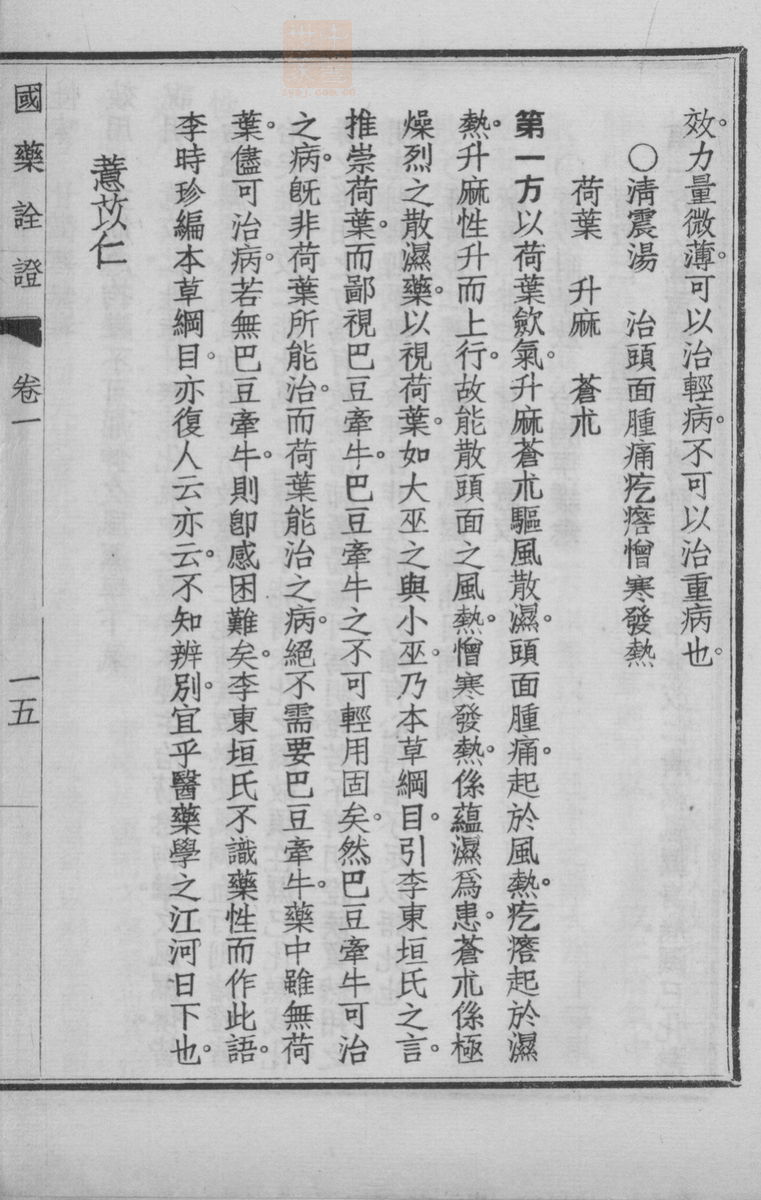 效力量微薄。可以治輕病。不可以治重病也。
○淸震湯　治頭面腫痛疙瘩憎寒發熱
荷葉　升麻　蒼朮
第一方以荷葉歛氣。升麻蒼朮驅風散濕。頭面腫痛。起於風熱。疙瘩起於濕
熱。升麻性升而上行。故能散頭面之風熱。憎寒發熱。係蘊濕爲患。蒼朮係極
燥烈之散濕藥。以視荷葉。如大巫之與小巫。乃本草綱目。引李東垣氏之言。
推崇荷葉。而鄙視巴豆牽牛。巴豆牽牛之不可輕用固矣。然巴豆牽牛可治
之病。旣非荷葉所能治。而荷葉能治之病。絕不需要巴豆牽牛。藥中雖無荷
葉。儘可治病。若無巴豆牽牛。則卽感困難矣。李東垣氏不識藥性而作此語。
李時珍編本草綱目。亦復人云亦云。不知辨別。宜乎醫藥學之江河日下也。
薏苡仁
國藥詮證　卷一　一五